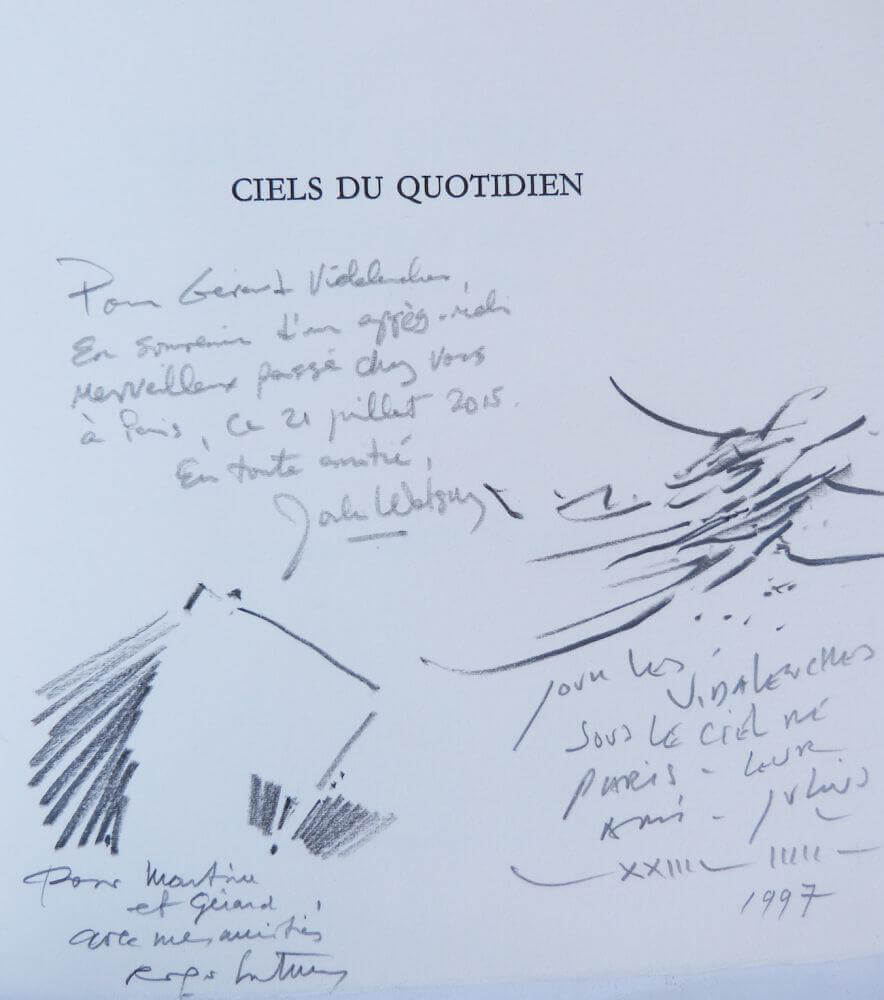 CIELS DU QUOTIDIEN
Pour Gérard Vidalenche,
En souvenir d'un après-midi
merveilleux passé chez vous
à Paris, ce 21 juillet 2015.
En toute amitié,
John
POUR LES
VIDALENCHES
SOUS LE CIEL DE
PARIS - LEUR
AMI - JULIUS
XXIII IIIII
1997
Pour Martine
et Gérard,
avec mes amitiés